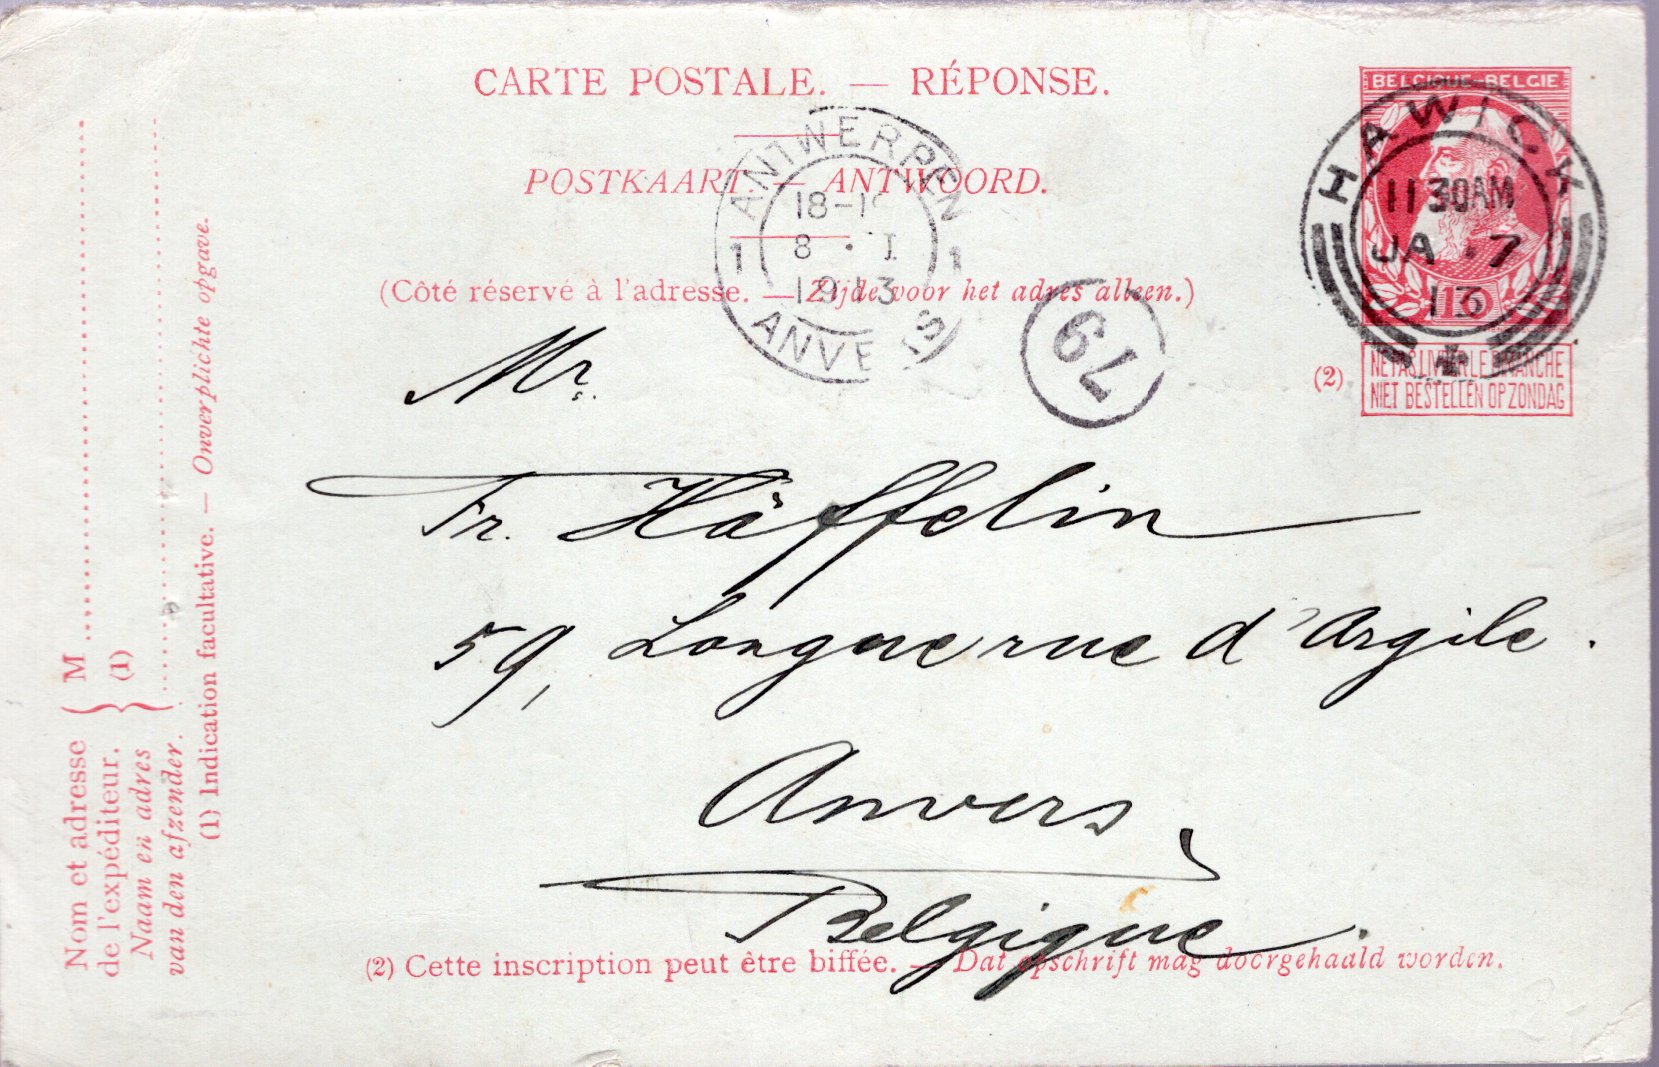 CARTE POSTALE. — RÉPONSE.
POSTKAART. — ANTWOORD.
(Côté réservé à l'adresse. — Zijde voor het adres alleen.)
BELGIQUE-BELGIE
10
(2)
NE PAS LIVRER LE DIMANCHE
NIET BESTELLEN OP ZONDAG
HAWICK
11 30AM
JA 7
13
ANTWERPEN
1 8 I 1
ANVERS
79
Mr.
Fr. Häffelin
59, Longue rue d'Argile.
Anvers,
Belgique.
(2) Cette inscription peut être biffée. — Dat opschrift mag doorgehaald worden.
Nom et adresse
de l'expéditeur.
Naam en adres
van den afzender.
M
(1)
(1) Indication facultative. — Onverplichte opgave.